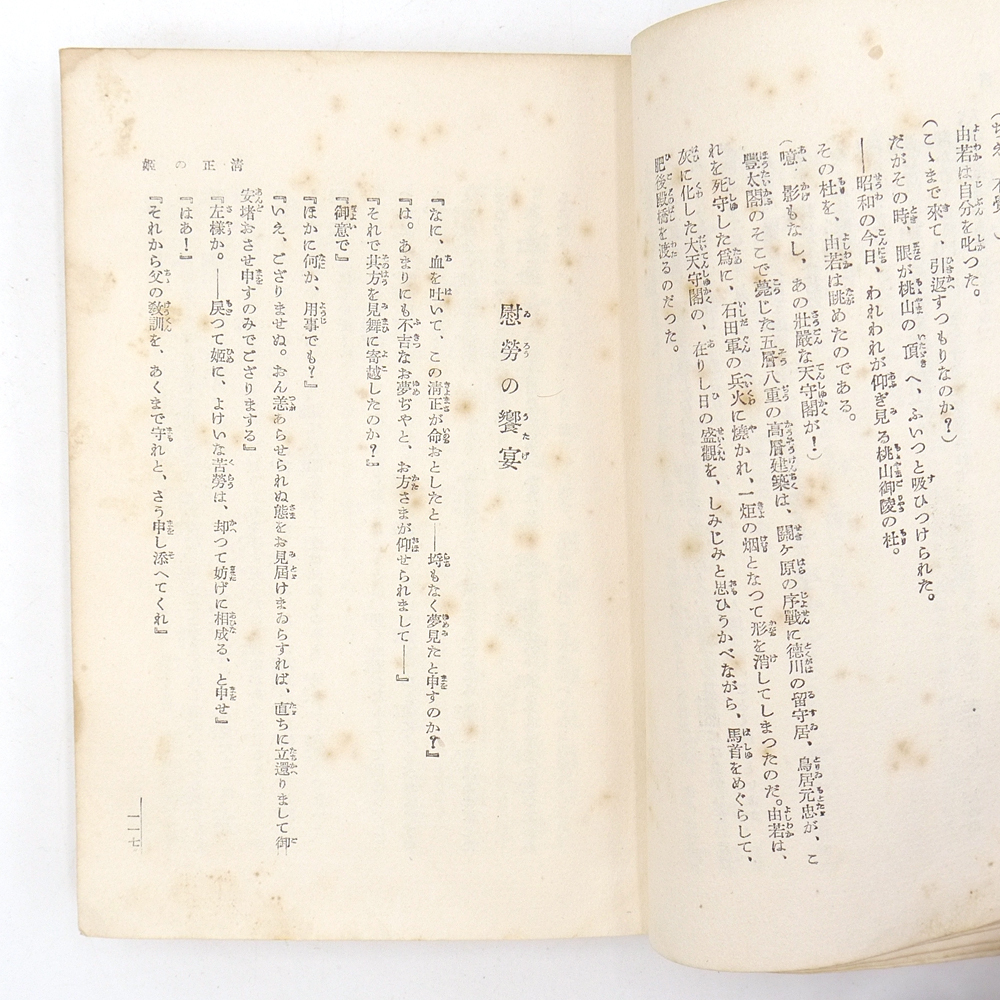 由若は自分を叱つた。
(こゝまで來て、引返すつもりなのか?)
だがその時、眼が桃山の頂へ、ふいつと吸ひつけられた。
――昭和の今日、われわれが仰ぎ見る桃山御陵の杜。
その杜を、由若は眺めたのである。
(噫、影もなし、あの壯嚴な天守閣が!)
豐太閤のそこで薨じた五層八重の高層建築は、關ヶ原の序戰に德川の留守居、鳥居元忠が、こ
れを死守した爲に、石田軍の兵火に燒かれ、一炬の烟となつて形を消してしまつたのだ。由若は、
灰に化した大天守閣の、在りし日の盛觀を、しみじみと思ひうかべながら、馬首をめぐらして、
肥後殿橋を渡るのだつた。
淸正の姬
慰勞の饗宴
『なに、血を吐いて、この淸正が命おとしたと――埒もなく夢見たと申すのか?』
『は。あまりにも不吉なお夢ぢやと、お方さまが仰せられまして――』
『それで其方を見舞に寄越したのか?』
『御意で』
『ほかに何か、用事でも?』
『いえ、ござりませぬ。おん恙あらせられぬ態をお見屆けまゐらすれば、直ちに立還りまして御
安堵おさせ申すのみでござりまする』
『左樣か。――戾つて姬に、よけいな苦勞は、却つて妨げに相成る、と申せ』
『はあ!』
『それから父の敎訓を、あくまで守れと、さう申し添へてくれ』
一一七